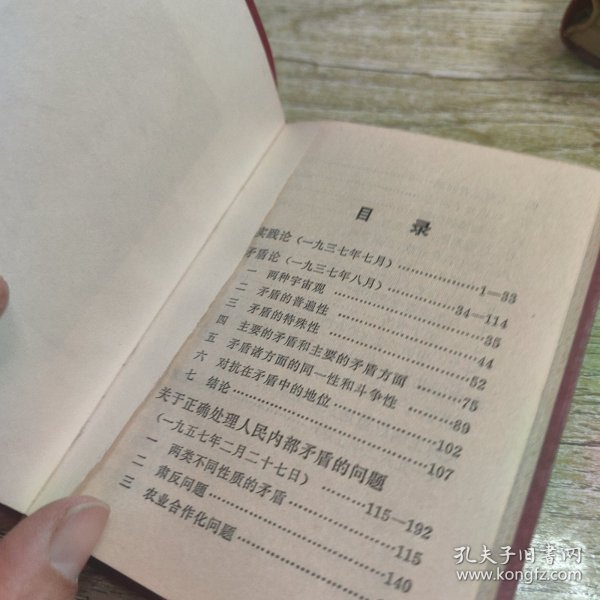 目 录
实践论(一九三七年七月)………………1—33
矛盾论(一九三七年八月)………………34—114
一 两种宇宙观………………35
二 矛盾的普遍性………………44
三 矛盾的特殊性………………52
四 主要的矛盾和主要的矛盾方面………75
五 矛盾诸方面的同一性和斗争性………89
六 对抗在矛盾中的地位………………102
七 结论………………107
关于正确处理人民内部矛盾的问题
(一九五七年二月二十七日)………115—192
一 两类不同性质的矛盾………………115
二 肃反问题………………140
三 农业合作化问题………………
孔夫子旧书网
www.kongfz.com